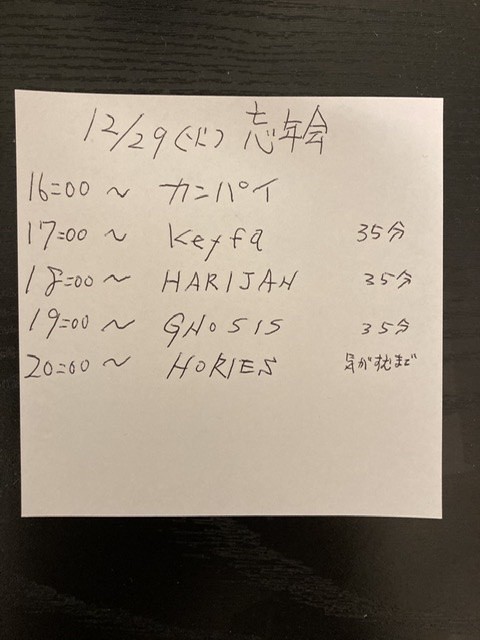 12/29(火) 忘年会
16:00 ～ カンパイ
17:00 ～ Keyfa 35分
18:00 ～ HARIJAN 35分
19:00 ～ GNOSIS 35分
20:00 ～ HORIES 気がすむまで